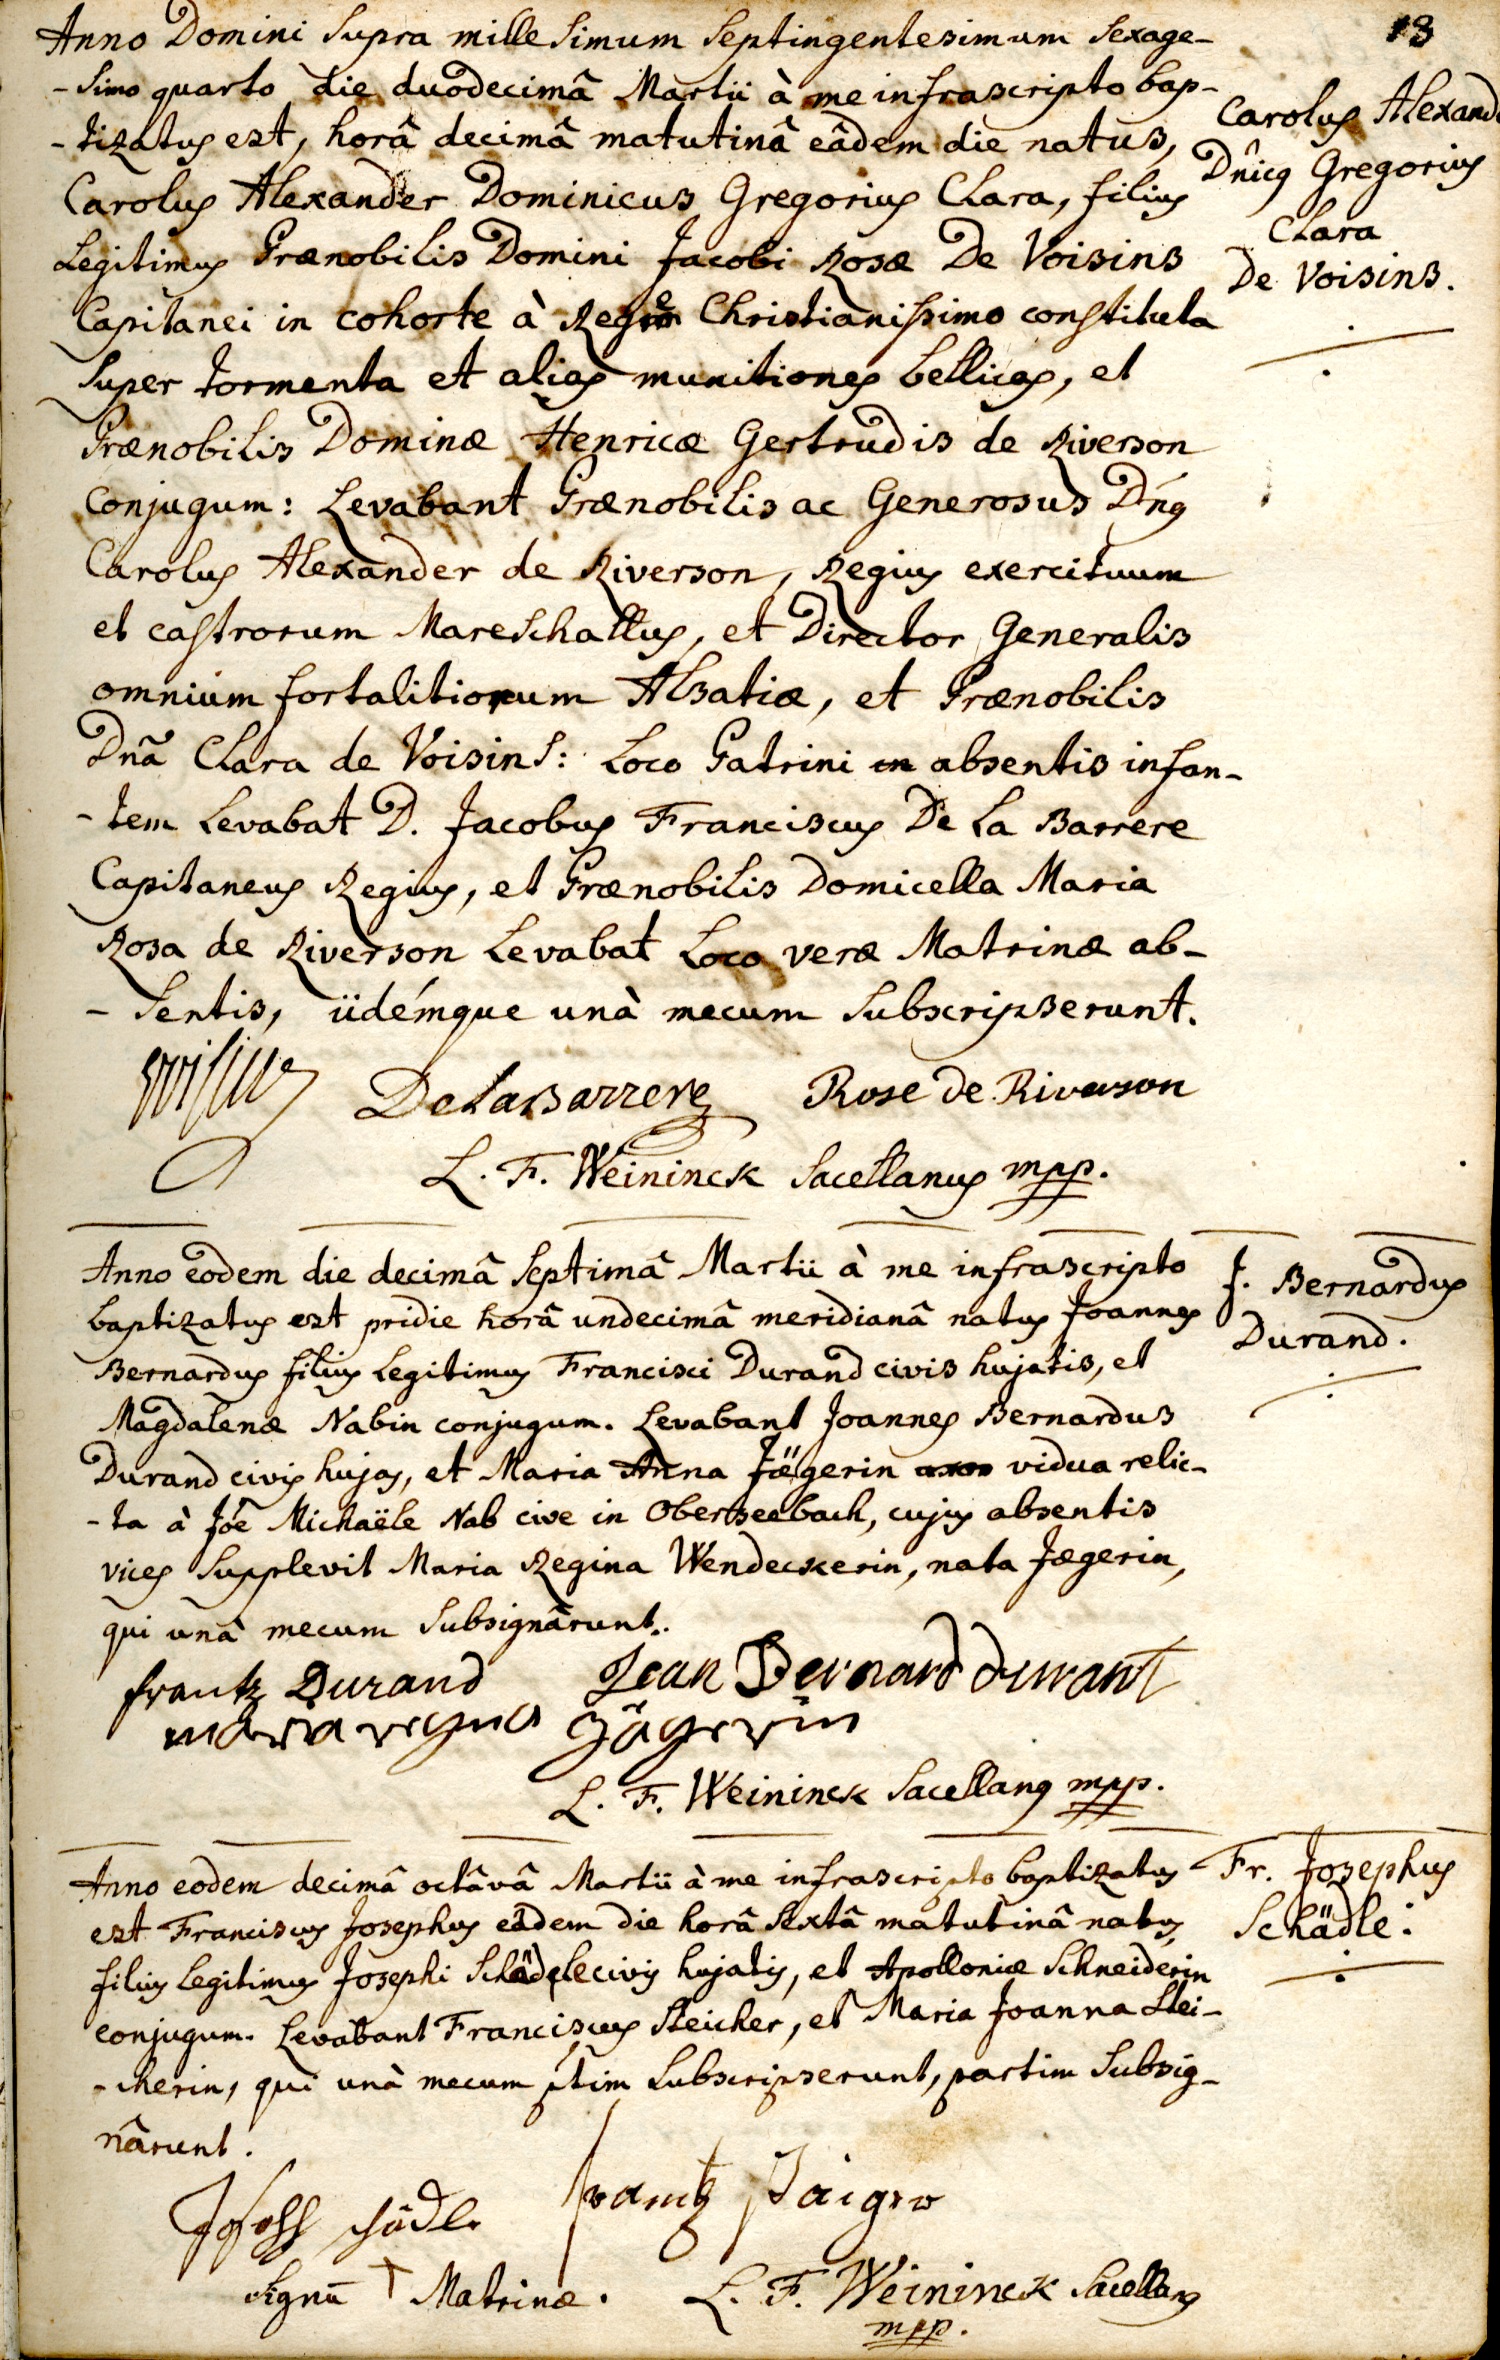 13
Anno Domini supra millesimum septingentesimum sexage-
-simo quarto die duodecimâ Martii à me infrascripto bap-
-tizatus est, horâ decimâ matutinâ eâdem die natus,
Carolus Alexander Dominicus Gregorius Clara, filius
legitimus Prænobilis Domini Jacobi Rosæ De Voisins
Capitanei in cohorte à Rege Christianissimo constituta
super tormenta et alias munitiones bellicas, et
Prænobilis Dominæ Henricæ Gertrudis de Riverson
conjugum: Levabant Prænobilis ac Generosus Dn̄9
Carolus Alexander de Riverson, Regius exercituum
et castrorum Mareschallus, et Director Generalis
omnium fortalitiorum Alsatiæ, et Prænobilis
Dnã Clara de Voisins: Loco Patrini absentis infan-
-tem Levabat D. Jacobus Franciscus De La Barrere
Capitaneus Regius, et Prænobilis Domicella Maria
Rosa de Riverson Levabat Loco veræ Matrinæ ab-
-sentis, iidémque unà mecum subscripserunt.
Carolus Alexand
Dn̂ic9 Gregorius
Clara
De Voisins.
voisins DeLaBarrere Rose de Riverson
L. F. Weininck Sacellanus mpp.
Anno eodem die decimâ septimâ Martii à me infrascripto
baptizatus est pridie horâ undecimâ meridianâ natus Joannes
Bernardus filius legitimus Francisci Durand civis hujatis, et
Magdalenæ Nabin conjugum. Levabant Joannes Bernardus
Durand civis hujas, et Maria Anna Jägerin vidua relic-
-ta à Jôe Michaële Nab cive in Oberseebach, cujus absentis
vices supplevit Maria Regina Wendeckerin, nata Jægerin,
qui unà mecum subsignârunt.
J. Bernardus
Durand.
frantz Durand Jean Bernard durant
maria regina Jägerin
L. F. Weininck Sacellan9 mpp.
Anno eodem decimâ octâvâ Martii à me infrascripto baptizatus
est Franciscus Josephus eâdem die horâ sextâ matutinâ natus,
filius legitimus Josephi Schädle civis hujatis, et Apolloniæ Schneiderin
conjugum. Levabant Franciscus Steicher, et Maria Joanna Stei-
-cherin, qui unà mecum ptim subscripserunt, partim subsig-
nârunt.
Fr. Josephus
Schädle.
Joseff schädle frantz
Signū † Matrinæ. L. F. Weininck Sacellan9
mpp.